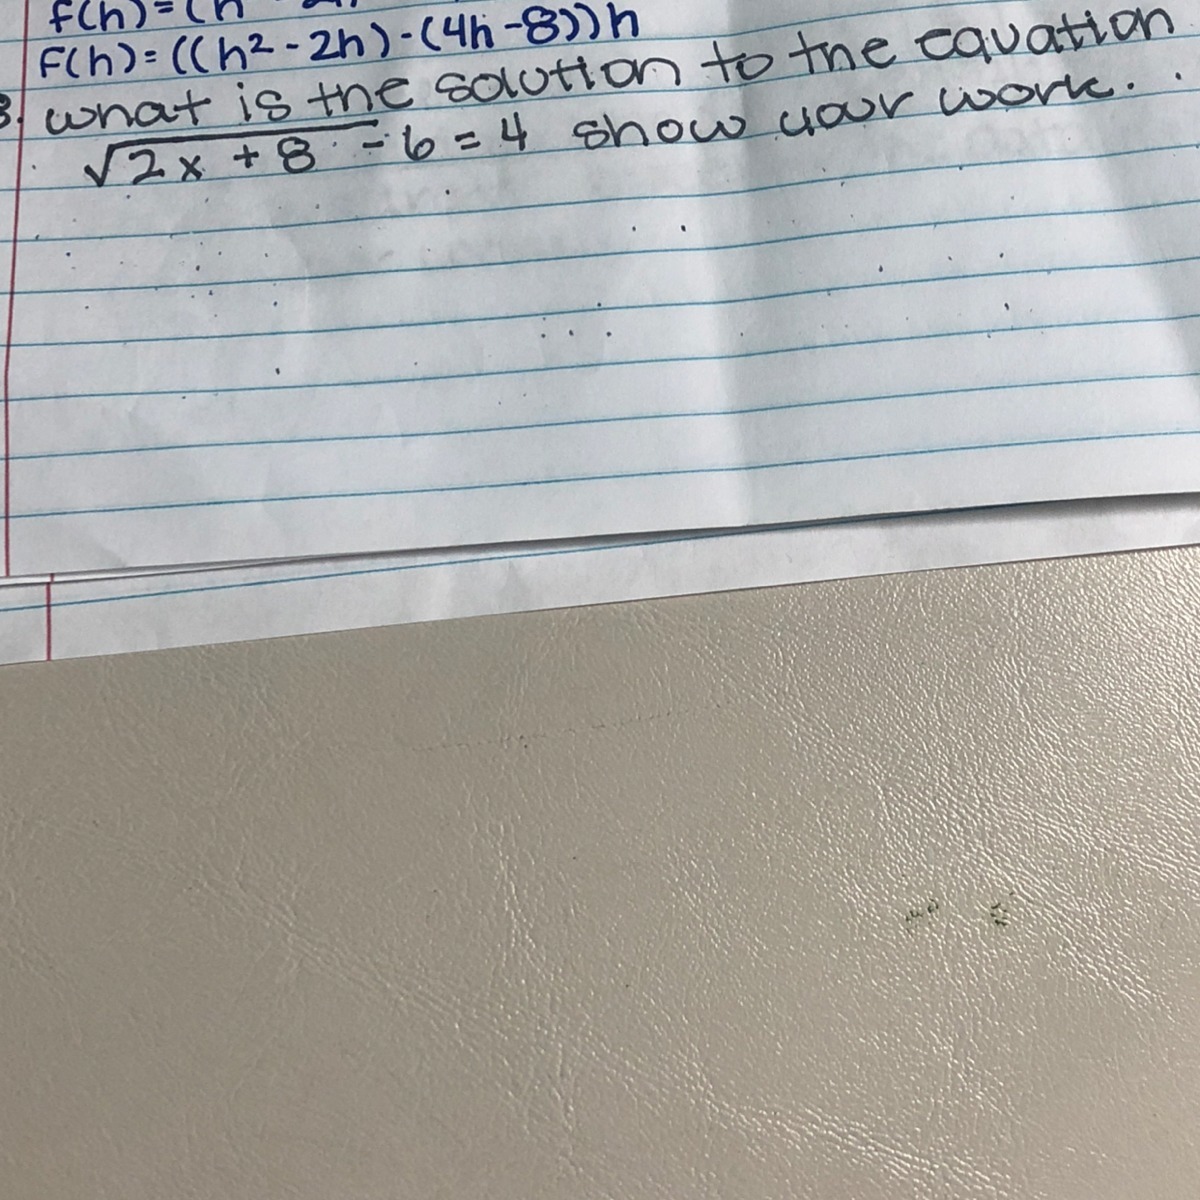 f(h)=(h
f(h)=((h²-2h)-(4h-8))h
3. what is the solution to the equation
√2x+8 -6=4 show your work.